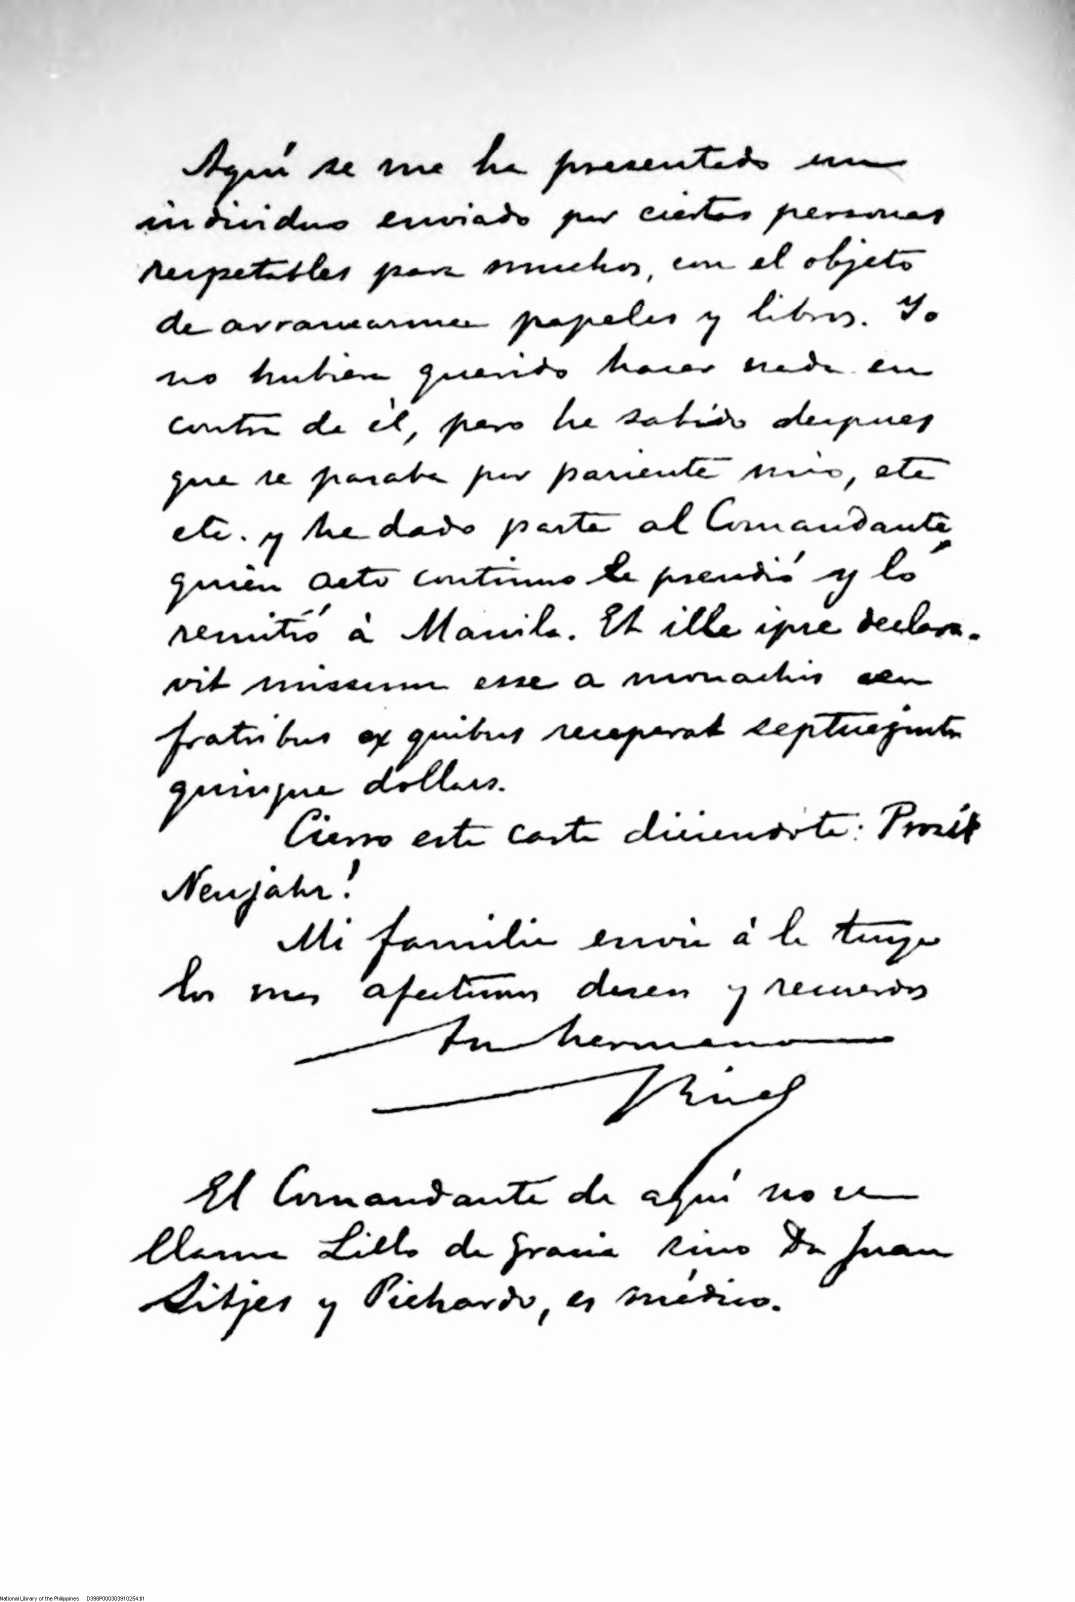 Aquí se me ha presentado un
individuo enviado por ciertas personas
respetables para muchos, con el objeto
de arrancarme papeles y libros. Yo
no hubiera querido hacer nada en
contra de él, pero he sabido despues
que se pasaba por pariente mio, etc
etc. y he dado parte al Comandante
quien acto continuo le prendió y ló
remitió á Manila. Et ille ipse declara-
vit missum esse a monachis seu
fratribus ex quibus receperat septuaginta
quinque dollars.
Cierro esta carta diciendote: Prosit
Neujahr!
Mi familia envia á la tuya
los mas afectuosos deseos y recuerdos
Tu hermano
Rizal
El Comandante de aquí no se
llama Lillo de Gracia sino Dn Juan
Sitjes y Pichardo, es médico.
National Library of the Philippines D396P000303910254.tif